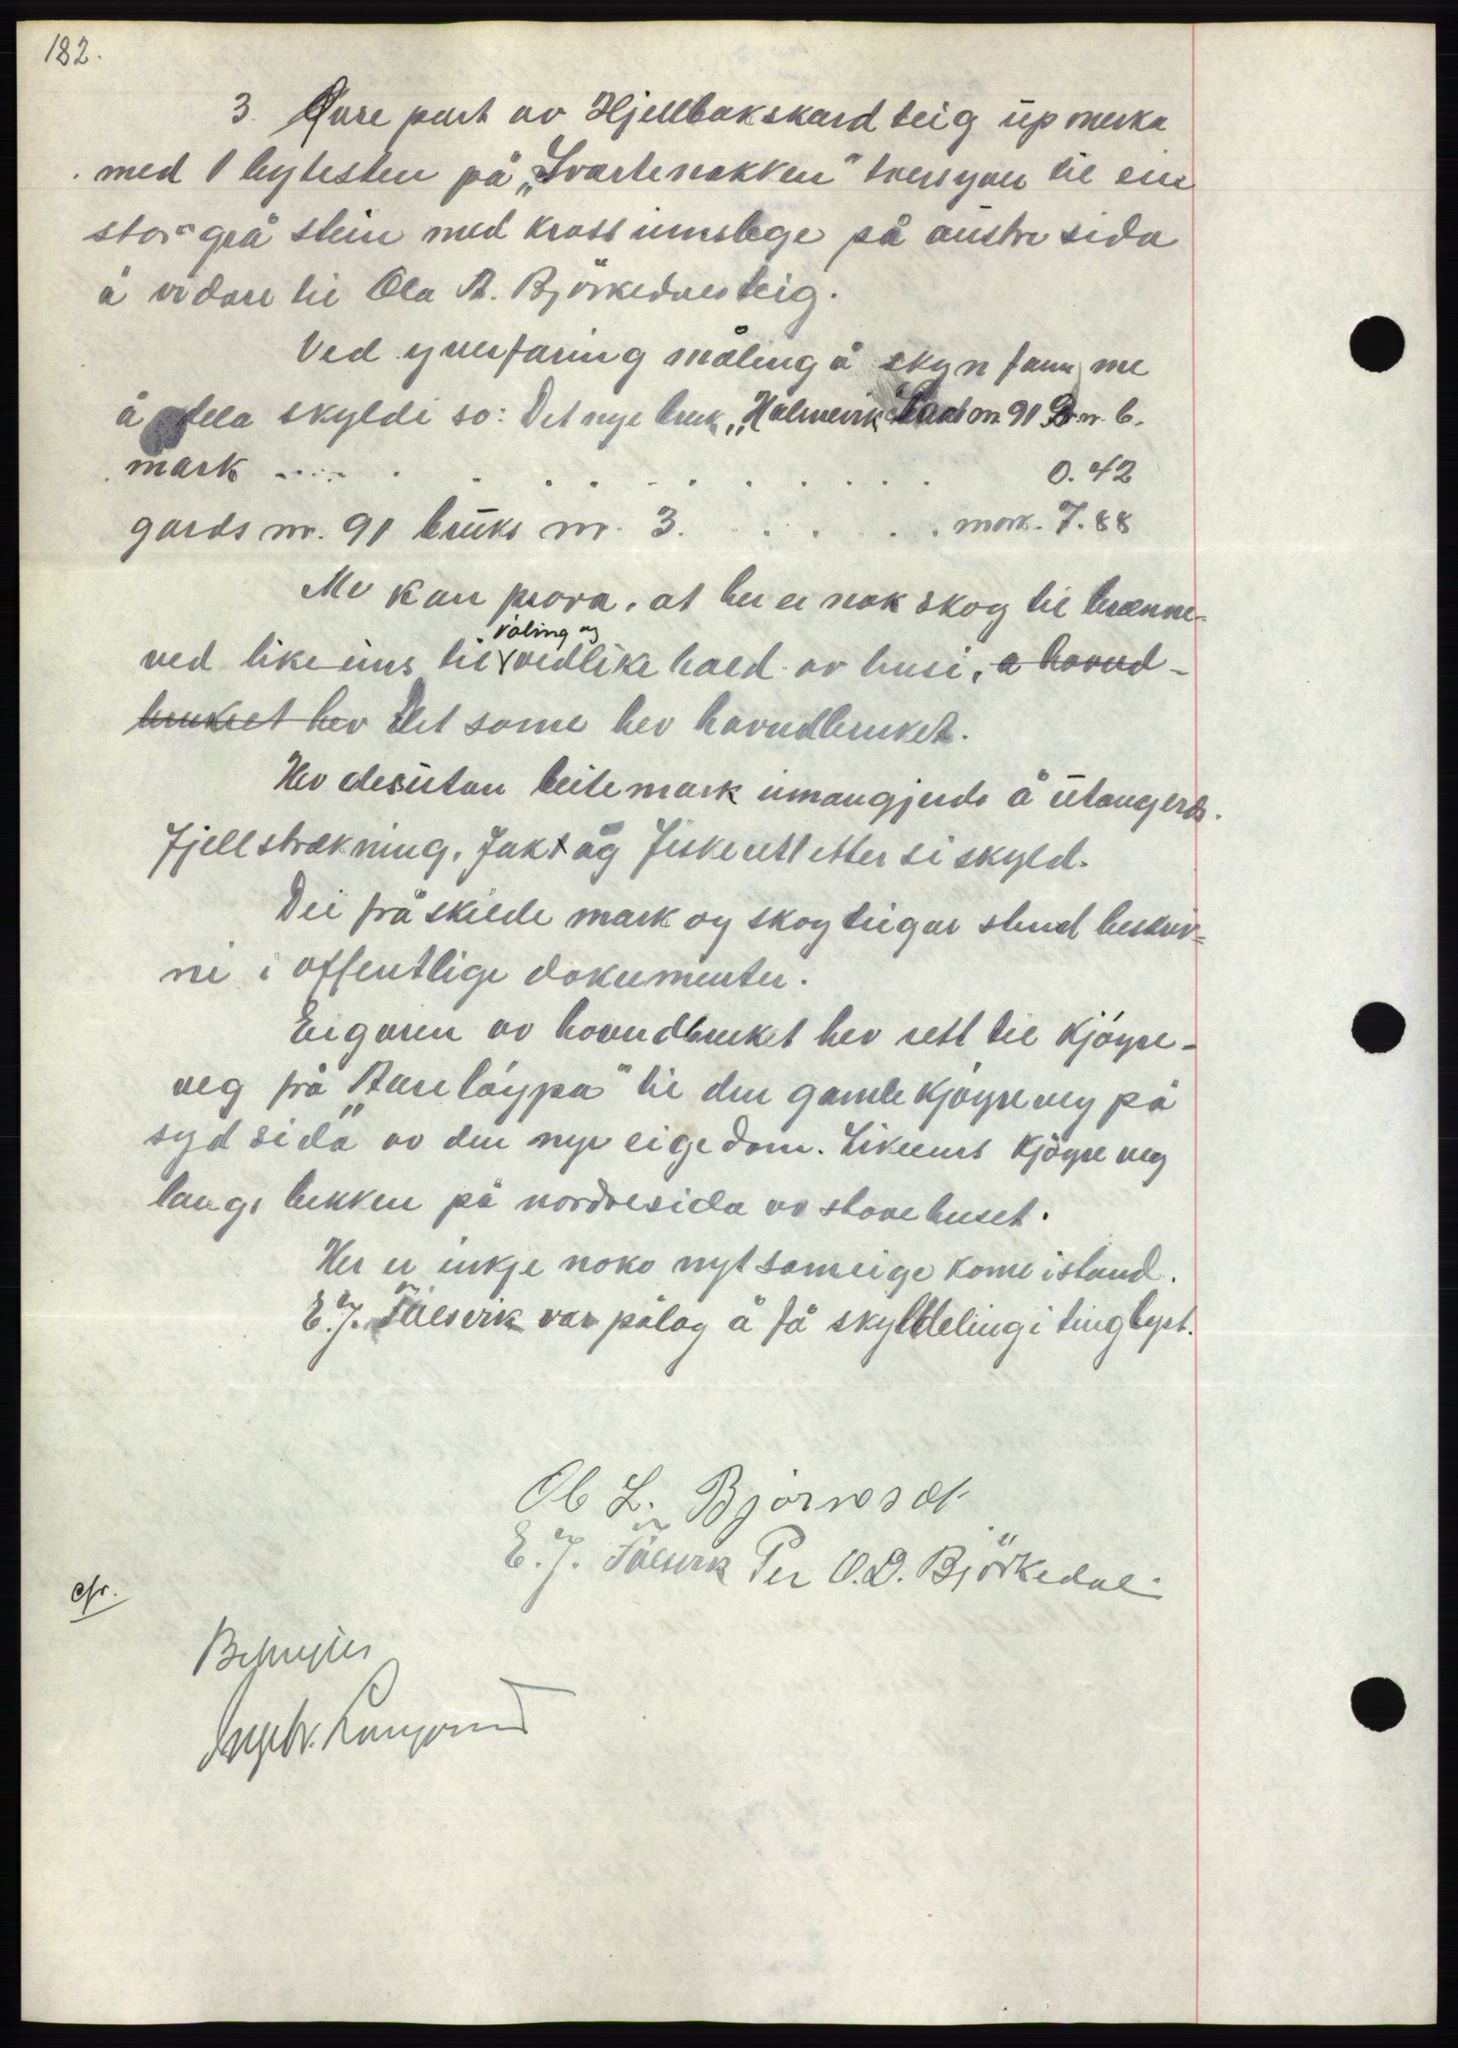 182.
3. Øvre part av Hjellbakskard teig upmerka
med 1 bytesten på „Svartenakken" tversyver til ein
stor grå stein med kross innslege på austre sida
å vidare til Ola A. Björkedals teig.
Ved yverfaring måling å skyn fann me
å dela skyldi so: Det nye bruk „Holmvik" Gard nr. 91 B. nr. 6.
mark ..... . . . . . . . . . . 0.42
gards nr. 91 bruks nr. 3. . . . . . mark. 7.88
Me kan prova, at her er nok skog til brænne-
ved like eins til våling og vedlikehald av husi, a hovud-
bruket hev Det same hev hovudbruket.
Hev desutan beitemark innangjerds å utangerds.
Fjellstrækning, Jakt og Fiskerett etter si skyld.
Dei fråskilde mark og skogteigar stend beskriv-
ne i offentlige dokumenter.
Eigaren av hovudbruket hev rett til Kjöyre-
veg frå "Aurelöypa" til den gamle Kjöyreveg på
syd sida av den nye eigedom. Likeeins Kjöyre veg
langs bekken på nordresida av stovehuset.
Her er inkje noko nyt sameige kome istand.
E. J. vik var pålag å få skylddelingi tinglyst.
Ob L. Björns
E. J. Per O. D. Björkedal
cfr.